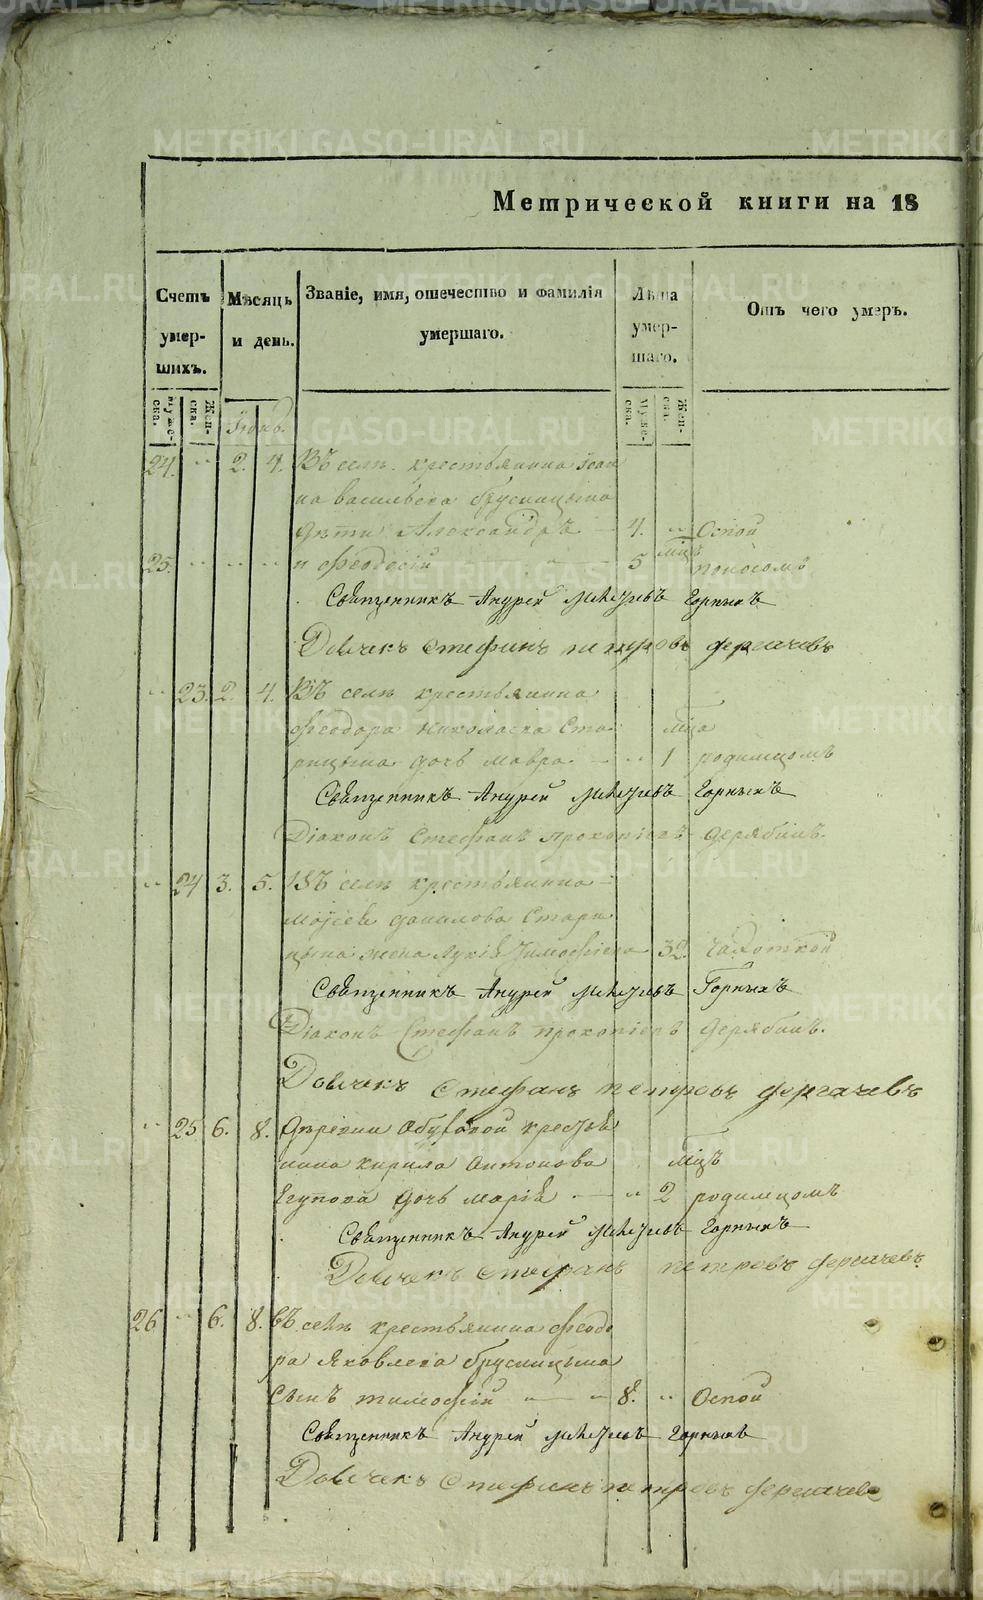 Метрической книги на 18
Счетъ умер- шихъ.
Мѣсяцъ и день.
Званіе, имя, отечество и фамилія умершаго.
Лѣта умер- шаго.
Отъ чего умеръ.
Муже- ска. Жен- ска. Муже- ска. Жен- ска.
24. 2. 4. Въ селѣ крестьянина Іоан
на Васильева Брусницына
дѣти Александръ 4. Оспой
мцъ
25. и Феодосій 5 поносомъ
Священникъ Андрей Горныхъ
Дьячекъ Стефанъ Петровъ
23. 2. 4. Въ селѣ крестьянина
Феодора Николаева Ста мца
рицына дочь Мавра 1 родимцомъ
Священникъ Андрей Горныхъ
Діаконъ Стефанъ Прокопіевъ Дерябинъ.
24 3. 5. Въ селѣ крестьянина
Моѵсея Данилова Стари
цына жена Тимофѣева 32. чахоткой
Священникъ Андрей Горныхъ
Діаконъ Стефанъ Прокопіевъ Дерябинъ.
Дьячекъ Стефанъ Петровъ
25 6. 8. Крестья
нина Кирила Антонова мцъ
Егупова дочь Марія 2 родимцомъ
Священникъ Андрей Горныхъ
Дьячекъ Стефанъ Петровъ
26 6. 8. Въ селѣ крестьянина Феодо
ра Яковлева Брусницына
сынъ Тимофій 8. Оспой
Священникъ Андрей Горныхъ
Дьячекъ Стефанъ Петровъ
METRIKI.GASO-URAL.RU